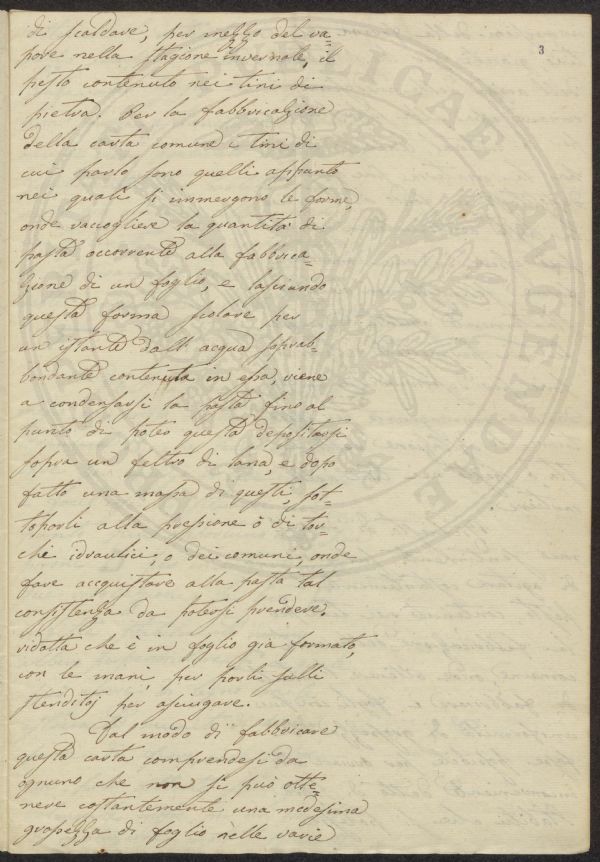 3
di scaldare, per mezzo del va=
pore nella stagione invernale, il
pesto contenuto nei tini di
pietra. Per la fabbricazione
della carta comune i tini di
cui parlo sono quelli appunto
nei quali si immergono le forme,
onde raccogliere la quantità di
pasta occorrente alla fabbrica=
zione di un foglio, e lasciando
questa forma scolare per
un istante dall' acqua soprab=
bondante contenuta in essa, viene
a condensarsi la pasta fino al
punto di poter questa depositarsi
sopra un feltro di lana, e dopo
fatto una massa di questi, sot=
toporli alla pressione ò di tor=
chi idraulici, o dei comuni, onde
fare accquistare alla pasta tal
consistenza da potersi prendere,
ridotta che è in foglio già formato,
con le mani, per porli sulli
stenditoj per asciugare.
Dal modo di fabbricare
questa carta comprendesi da
ognuno che non si può otte=
nere costantemente una medesima
grossezza di foglio nelle varie